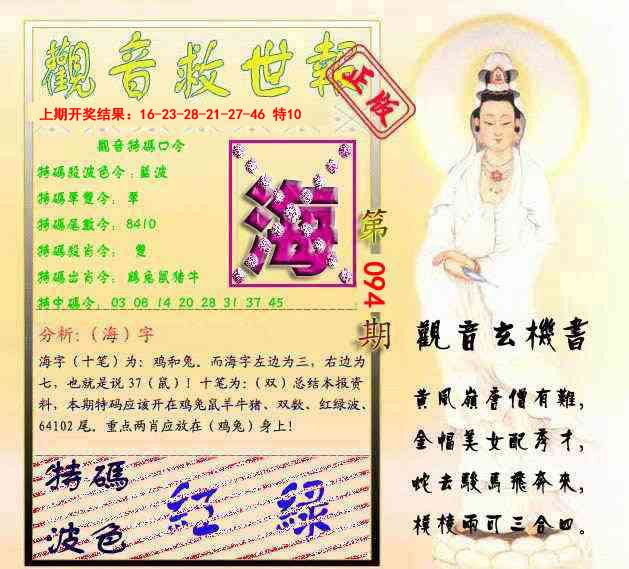 觀音救世報
正版
上期开奖结果：16-23-28-21-27-46 特10
觀音特碼口令
特碼殺波色令：藍波
特碼單雙令： 單
特碼尾數令：8410
特碼殺肖令： 雙
特碼出肖令： 鷄兔鼠猪牛
特中碼令： 03 08 14 20 28 31 37 45
海
第094期
分析:（海）字
海字（十笔）为：鸡和兔。而海字左边为三，右边为
七，也就是说 37（鼠）！十笔为:（双）总结本报资
料，本期特码应该开在鸡兔鼠羊牛猪、双数、红绿波、
64102 尾。重点两肖应放在（鸡兔）身上！
特碼
波色
紅 綠
觀音玄機書
黃風嶺唐僧有難，
金幅美女配秀才，
蛇去駿馬飛奔來，
模棱兩可三合四。